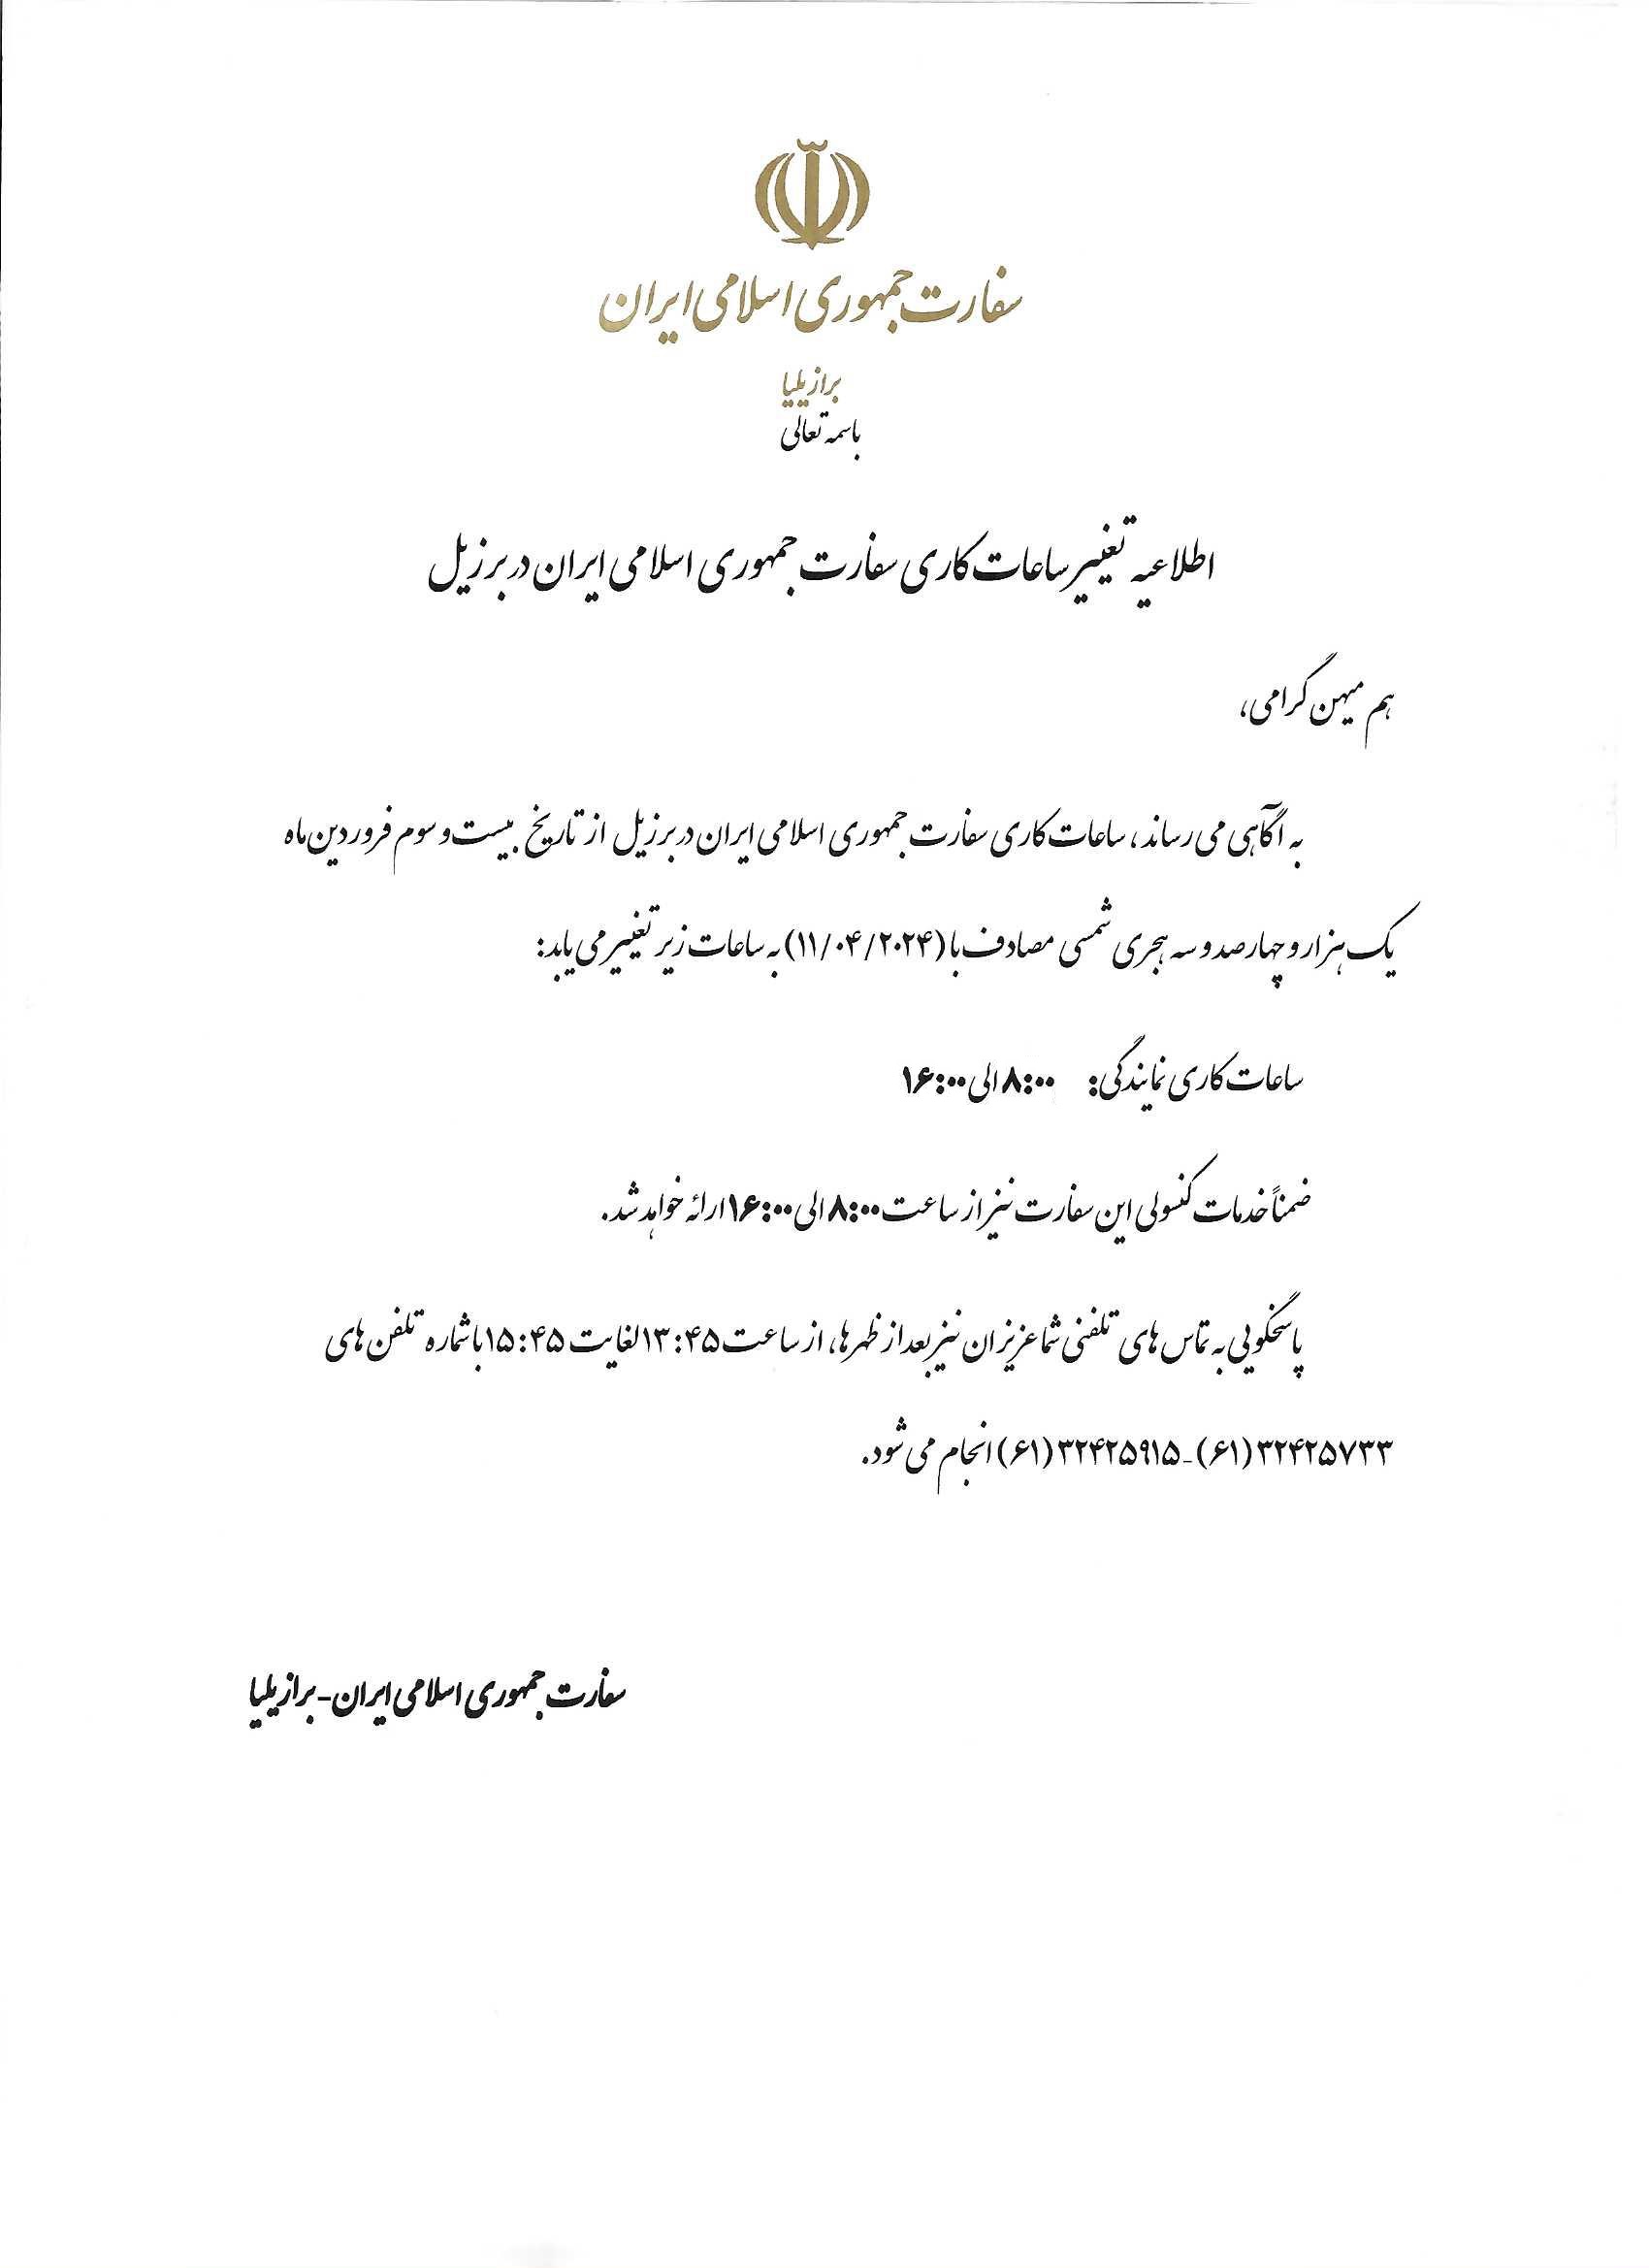 سفارت جمهوری اسلامی ایران
برازیلیا
باسمه تعالی
اطلاعیه تغییر ساعات کاری سفارت جمهوری اسلامی ایران در برزیل
هم میهن گرامی،
به آگاهی می رساند، ساعات کاری سفارت جمهوری اسلامی ایران در برزیل از تاریخ بیست و سوم فروردین ماه
یک هزار و چهارصد و سه هجری شمسی مصادف با (۱۱/۰۴/۲۰۲۴) به ساعات زیر تغییر می یابد:
ساعات کاری نمایندگی: ۸:۰۰ الی ۱۶:۰۰
ضمناً خدمات کنسولی این سفارت نیز از ساعت ۸:۰۰ الی ۱۶:۰۰ ارائه خواهد شد.
پاسخگویی به تماس های تلفنی شما عزیزان نیز بعد از ظهرها، از ساعت ۱۳:۴۵ لغایت ۱۵:۴۵ با شماره تلفن های
۳۲۴۲۵۷۳۳(۶۱)-۳۲۴۲۵۹۱۵(۶۱) انجام می شود.
سفارت جمهوری اسلامی ایران-برازیلیا